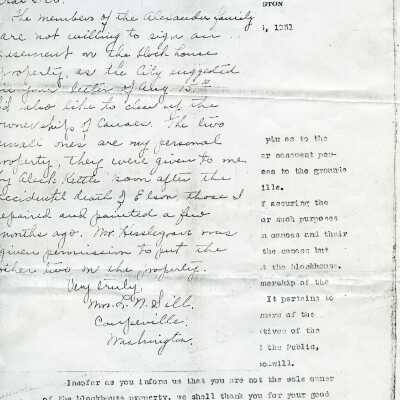 Dear Sir:
The members of the Alexander family
are not willing to sign an
easement on the block house
property, as the City suggested
in your letter of Aug 15th
I'd also like to clear up the
ownerships of Canoes. The two
small ones are my personal
property, they were given to me
by Aleck Kettle soon after the
accidental death of Elson, those I
repaired and painted a few
months ago. Mr. Hesselgrave was
given permission to put the
other two on the property.
Very truly,
Mrs. L. N. Sill.
Coupeville.
Washington.
GTON
, 1931
you as to the
or easement pow-
ess to the grounds
ille.
f securing the
or such purposes
n canoes and their
the canoes but
t the blockhouse.
mership of the
It pertains to
mers of the
tives of the
the Public,
oodwill.
Insofar as you inform us that you are not the sole owner
of the blockhouse property, we shall thank you for your good